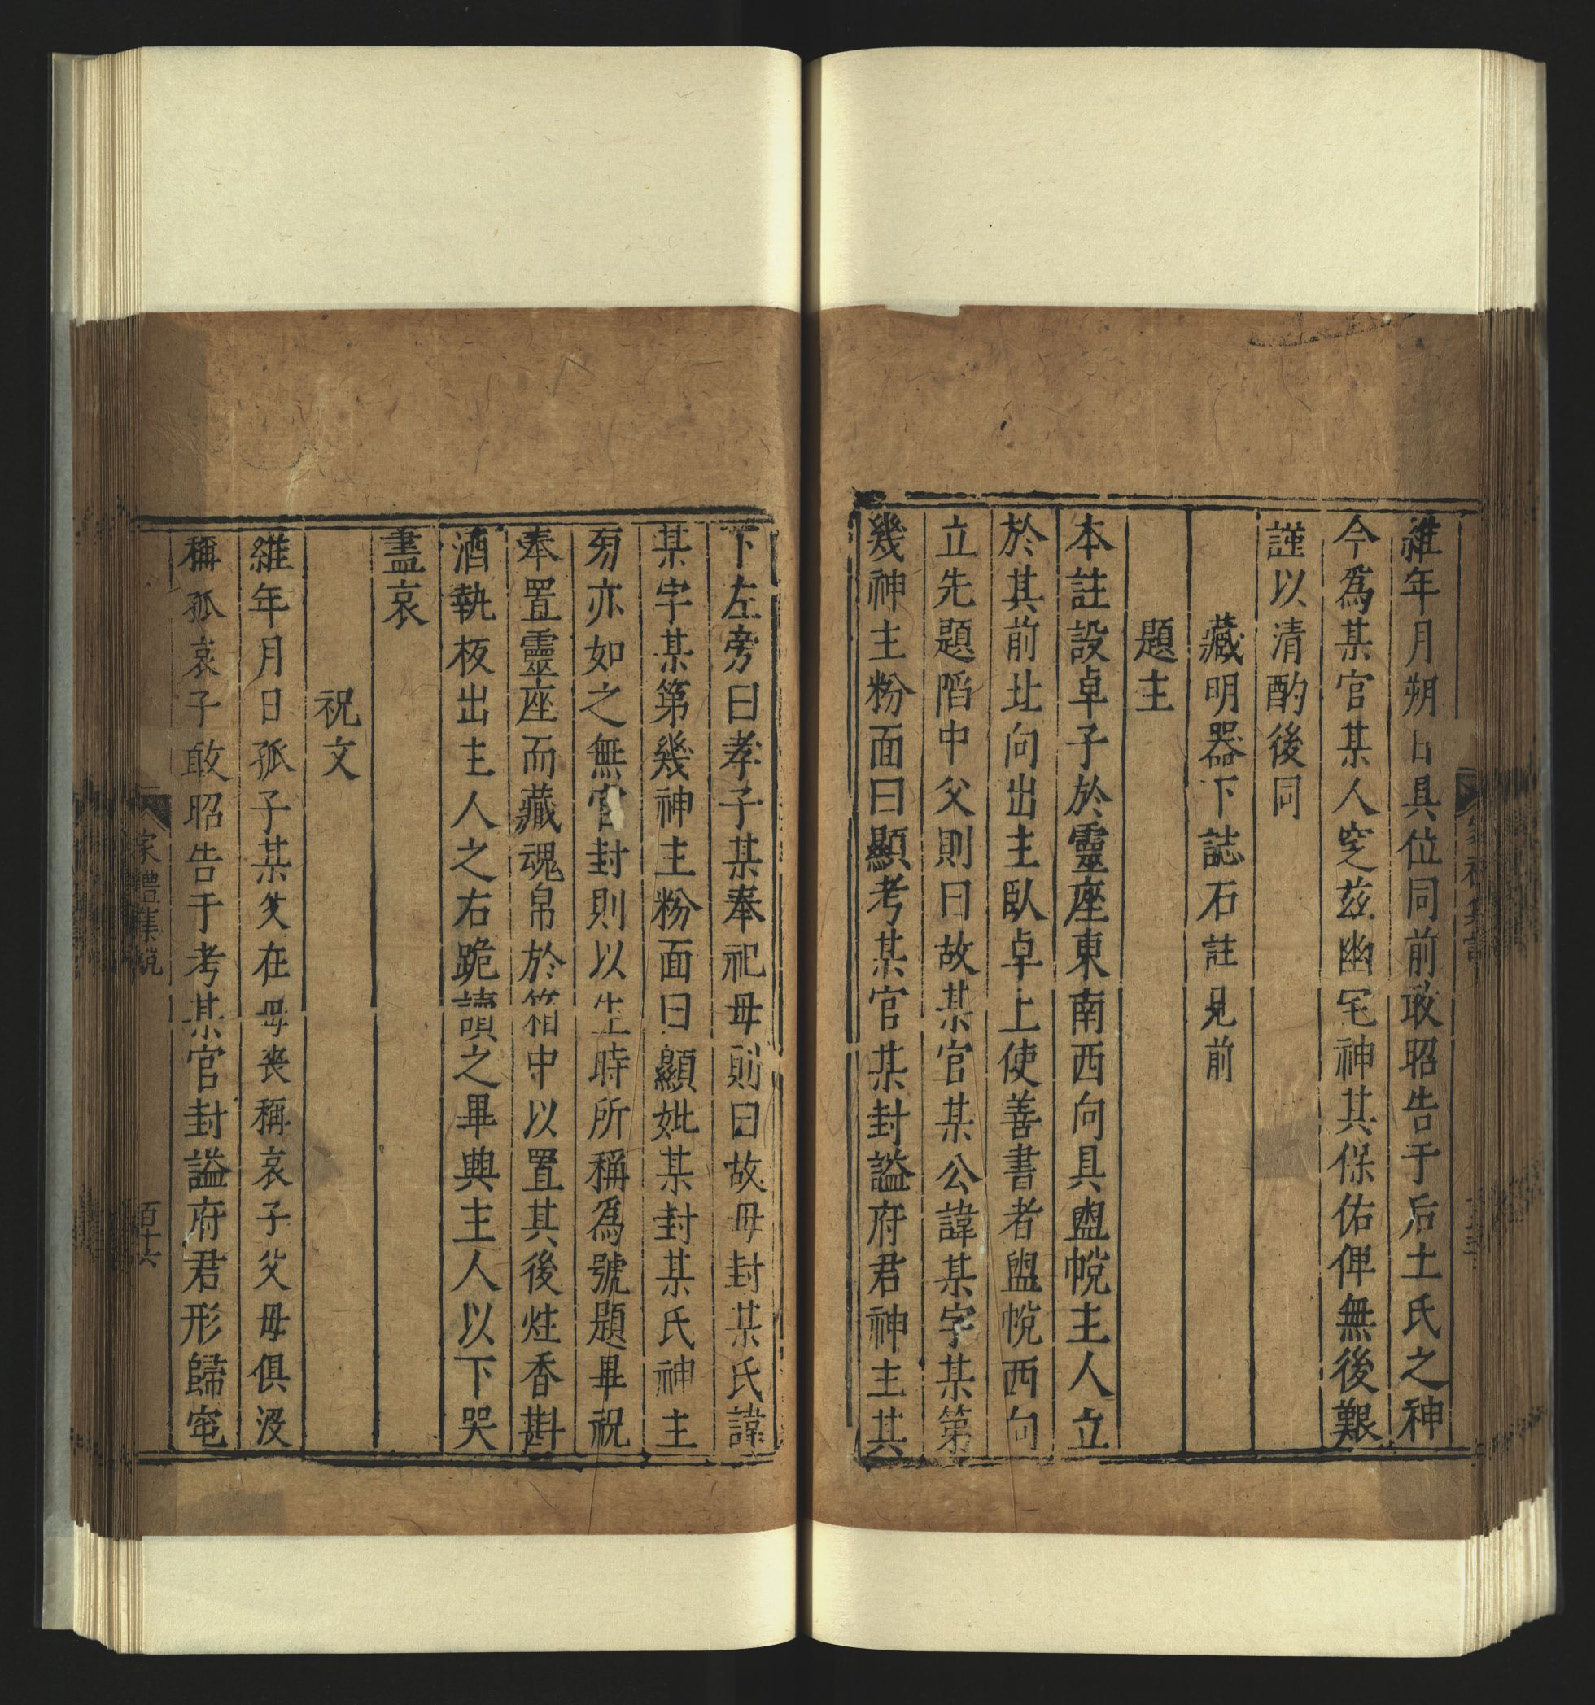 維年月朔日具位同前敢昭告于后土氏之神
今爲某官某人窆兹幽宅神其保佑俾無後艱
謹以清酌後同
藏明器下誌石註見前
題主
本註設卓子於靈座東南西向具盥帨主人立
於其前北向出主臥卓上使善書者盥帨西向
立先題䧟中父則曰故某官某公諱某字某第
幾神主粉面曰顯考某官某封謚府君神主其
下左旁曰孝子某奉祀母則曰故母封某氏諱
某字某第幾神主粉面曰顯妣某封某氏神主
旁亦如之無官封則以生時所稱爲號題畢祝
奉置靈座而藏魂帛於箱中以置其後炷香斟
酒執板出主人之右跪讀之畢興主人以下哭
盡哀
祝文
維年月日孤子某父在母丧稱哀子父母俱没
稱孤哀子敢昭告于考某官封謚府君形歸窀
家禮集說
百十六